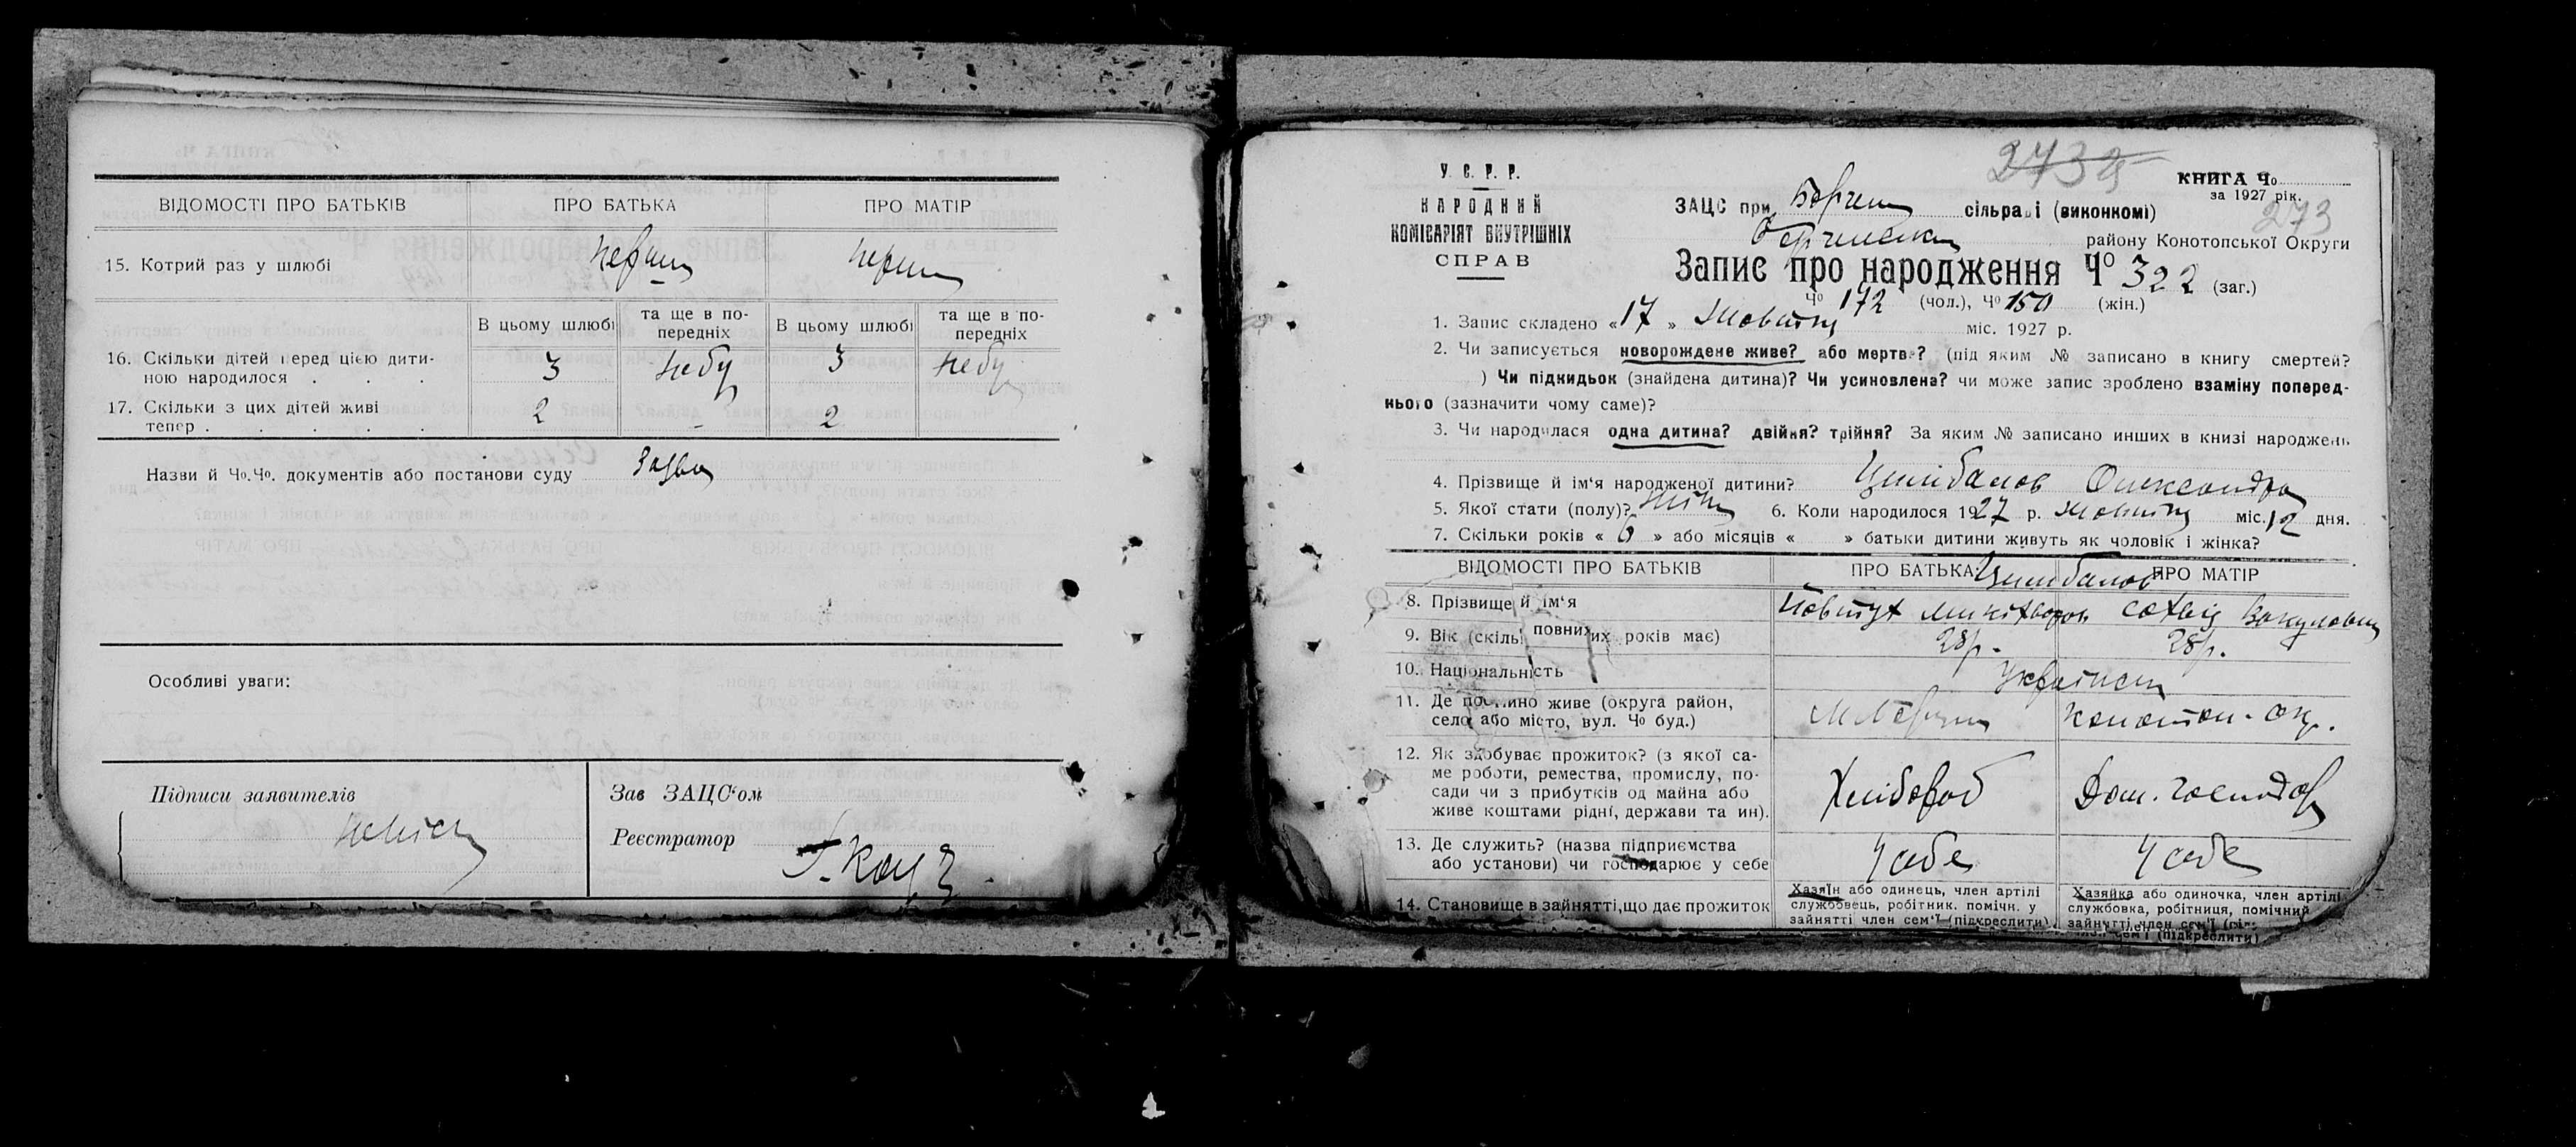 ВІДОМОСТІ ПРО БАТЬКІВ ПРО БАТЬКА ПРО МАТІР
15. Котрий раз у шлюбі перши перши
В цьому шлюбі та ще в по-передніх В цьому шлюбі та ще в по-передніх
16. Скільки дітей перед цією дити-
ною народилося . . . 3 Небу 3 Небу
17. Скільки з цих дітей живі
тепер . . . . . 2 - 2
Назви й Чо.Чо. документів або постанови суду
Особливі уваги:
Підписи заявителів
Зав ЗАЦС‘ом
Реєстратор
2732
У. С. Р. Р.
НАРОДНИЙ
КОМІСАРІЯТ ВНУТРІШНІХ
СПРАВ
КНИГА Чо
за 1927 рік.
273
ЗАЦС при сільраді (виконкомі)
району Конотопської Округи
Запис про народження Чо 322 (заг.)
Чо 172 (чол.), Чо 150 (жін.)
1. Запис складено «17» Жовтня міс. 1927 р.
2. Чи записується новорождене живе? або мертве? (під яким № записано в книгу смертей?
) Чи підкидьок (знайдена дитина)? Чи усиновлена? чи може запис зроблено взаміну поперед-
нього (зазначити чому саме)?
3. Чи народилася одна дитина? двійня? трійня? За яким № записано инших в книзі народжень
4. Прізвище й ім‘я народженої дитини? Цимбалов Олександра
5. Якої стати (полу)? 6. Коли народилося 1927 р. Жовтня міс. 12 дня.
7. Скільки років «6» або місяців « » батьки дитини живуть як чоловік і жінка?
ВІДОМОСТІ ПРО БАТЬКІВ ПРО БАТЬКА: ПРО МАТІР
Цимбалов
8. Прізвище й ім‘я
9. Вік (скільк повних их років має) 28р. 28р.
10. Національність
11. Де постійно живе (округа район,
село або місто, вул. Чо буд.) Конотоп. окр.
12. Як здобуває прожиток? (з якої са-
ме роботи, ремества, промислу, по-
сади чи з прибутків од майна або
живе коштами рідні, держави та ин). Хлібороб Дом. господар
13. Де служить? (назва підприємства
або установи) чи господарює у себе У себе У себе
14. Становище в зайнятті,що дає прожиток
Хазяїн або одинець, член артілі
службовець, робітник. помічн. у
зайнятті член сем‘ї (підкреслити)
Хазяйка або одиночка, член артілі
службовка, робітниця, помічний
зайнятті член сем‘ї
член сем‘ї (підкреслити)